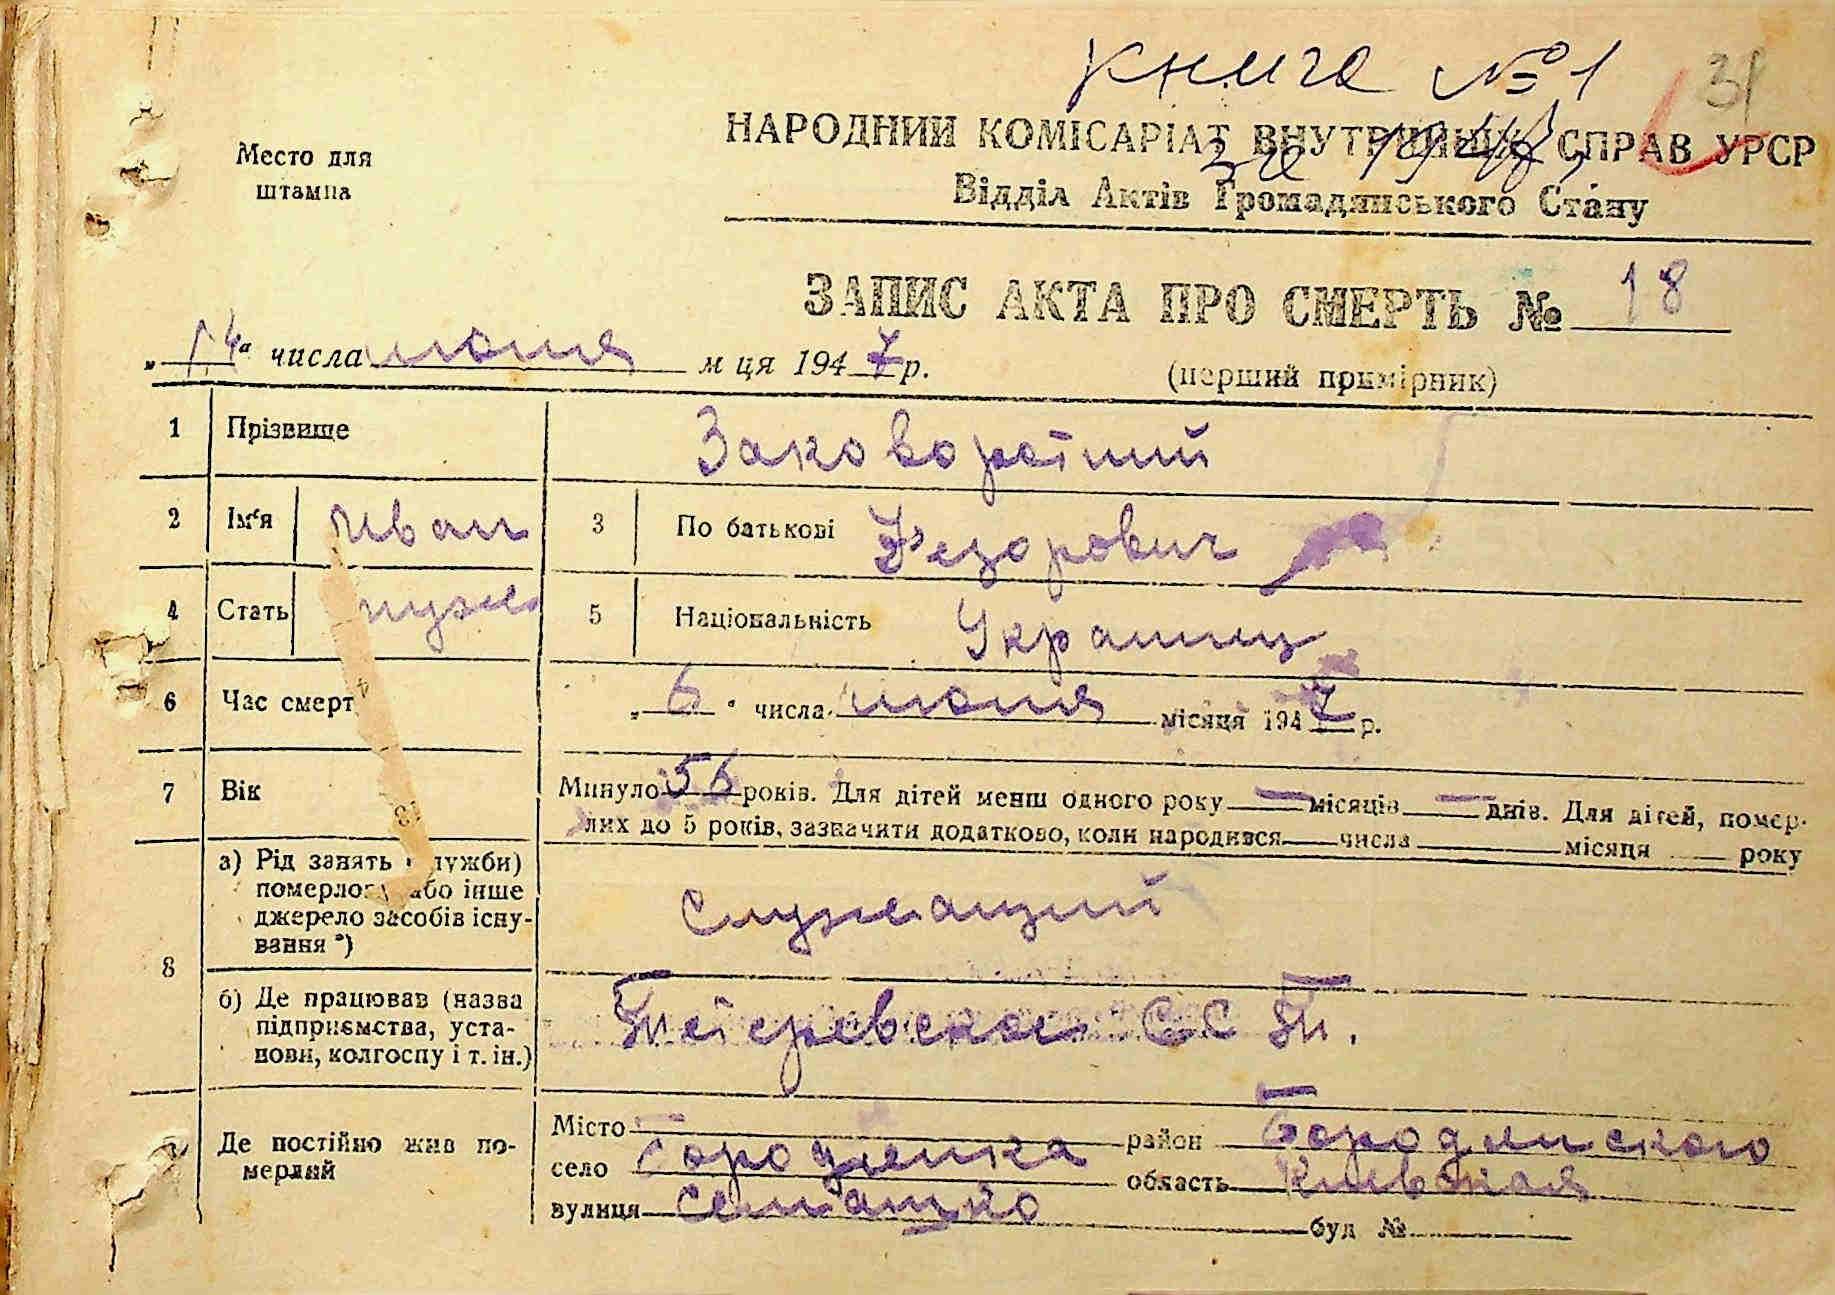 Книга № 1
31
Место для
штампа
НАРОДНИЙ КОМІСАРІАТ ВНУТРІШНІХ СПРАВ УРСР
Відділ Актів Громадянського Стану
ЗАПИС АКТА ПРО СМЕРТЬ № 18
„14“ числа июня м ця 1947 р.
(перший примірник)
1 Прізвище Заковоротний
2 Ім‘я Иван 3 По батькові Федорович
4 Стать муж 5 Національність Украинец
6 Час смерт „6“ числа июня місяця 1947 р.
7 Вік Минуло 56 років. Для дітей менш одного року — місяців — днів. Для дітей, помер-
лих до 5 років, зазначити додатково, коли народився числа місяця року
8 а) Рід занять служби)
померлого або інше
джерело засобів існу-
вання *)
Служащий
б) Де працював (назва
підприємства, уста-
нови, колгоспу і т. ін.)
ССП.
Де постійно жив по-
мерлий
Місто район Бородянского
село Бородянка область Киевская
вулиця буд №